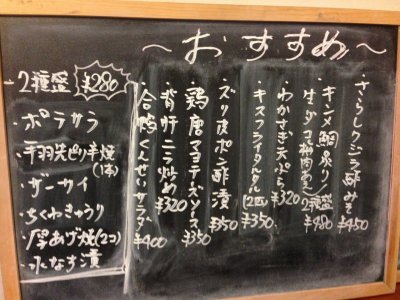 ~おすすめ~
・さらしクジラ酢みそ ¥450
・キンメ鯛炙り/生ダコ梅肉あえ/2種盛 ¥480
・わかさぎ天ぷら ¥320
・キスフライタルタル(2匹) ¥350
・ズリ皮ポン酢漬 ¥350
・鶏唐マヨチーズソース ¥350
・背肝ニラ炒め ¥320
・合鴨くんせいサラダ ¥400
2種盛 ¥280
・ポテサラ
・手羽先ピリ辛焼(1本)
・ザーサイ
・ちくわきゅうり
・厚あげ焼(2コ)
・水なす漬